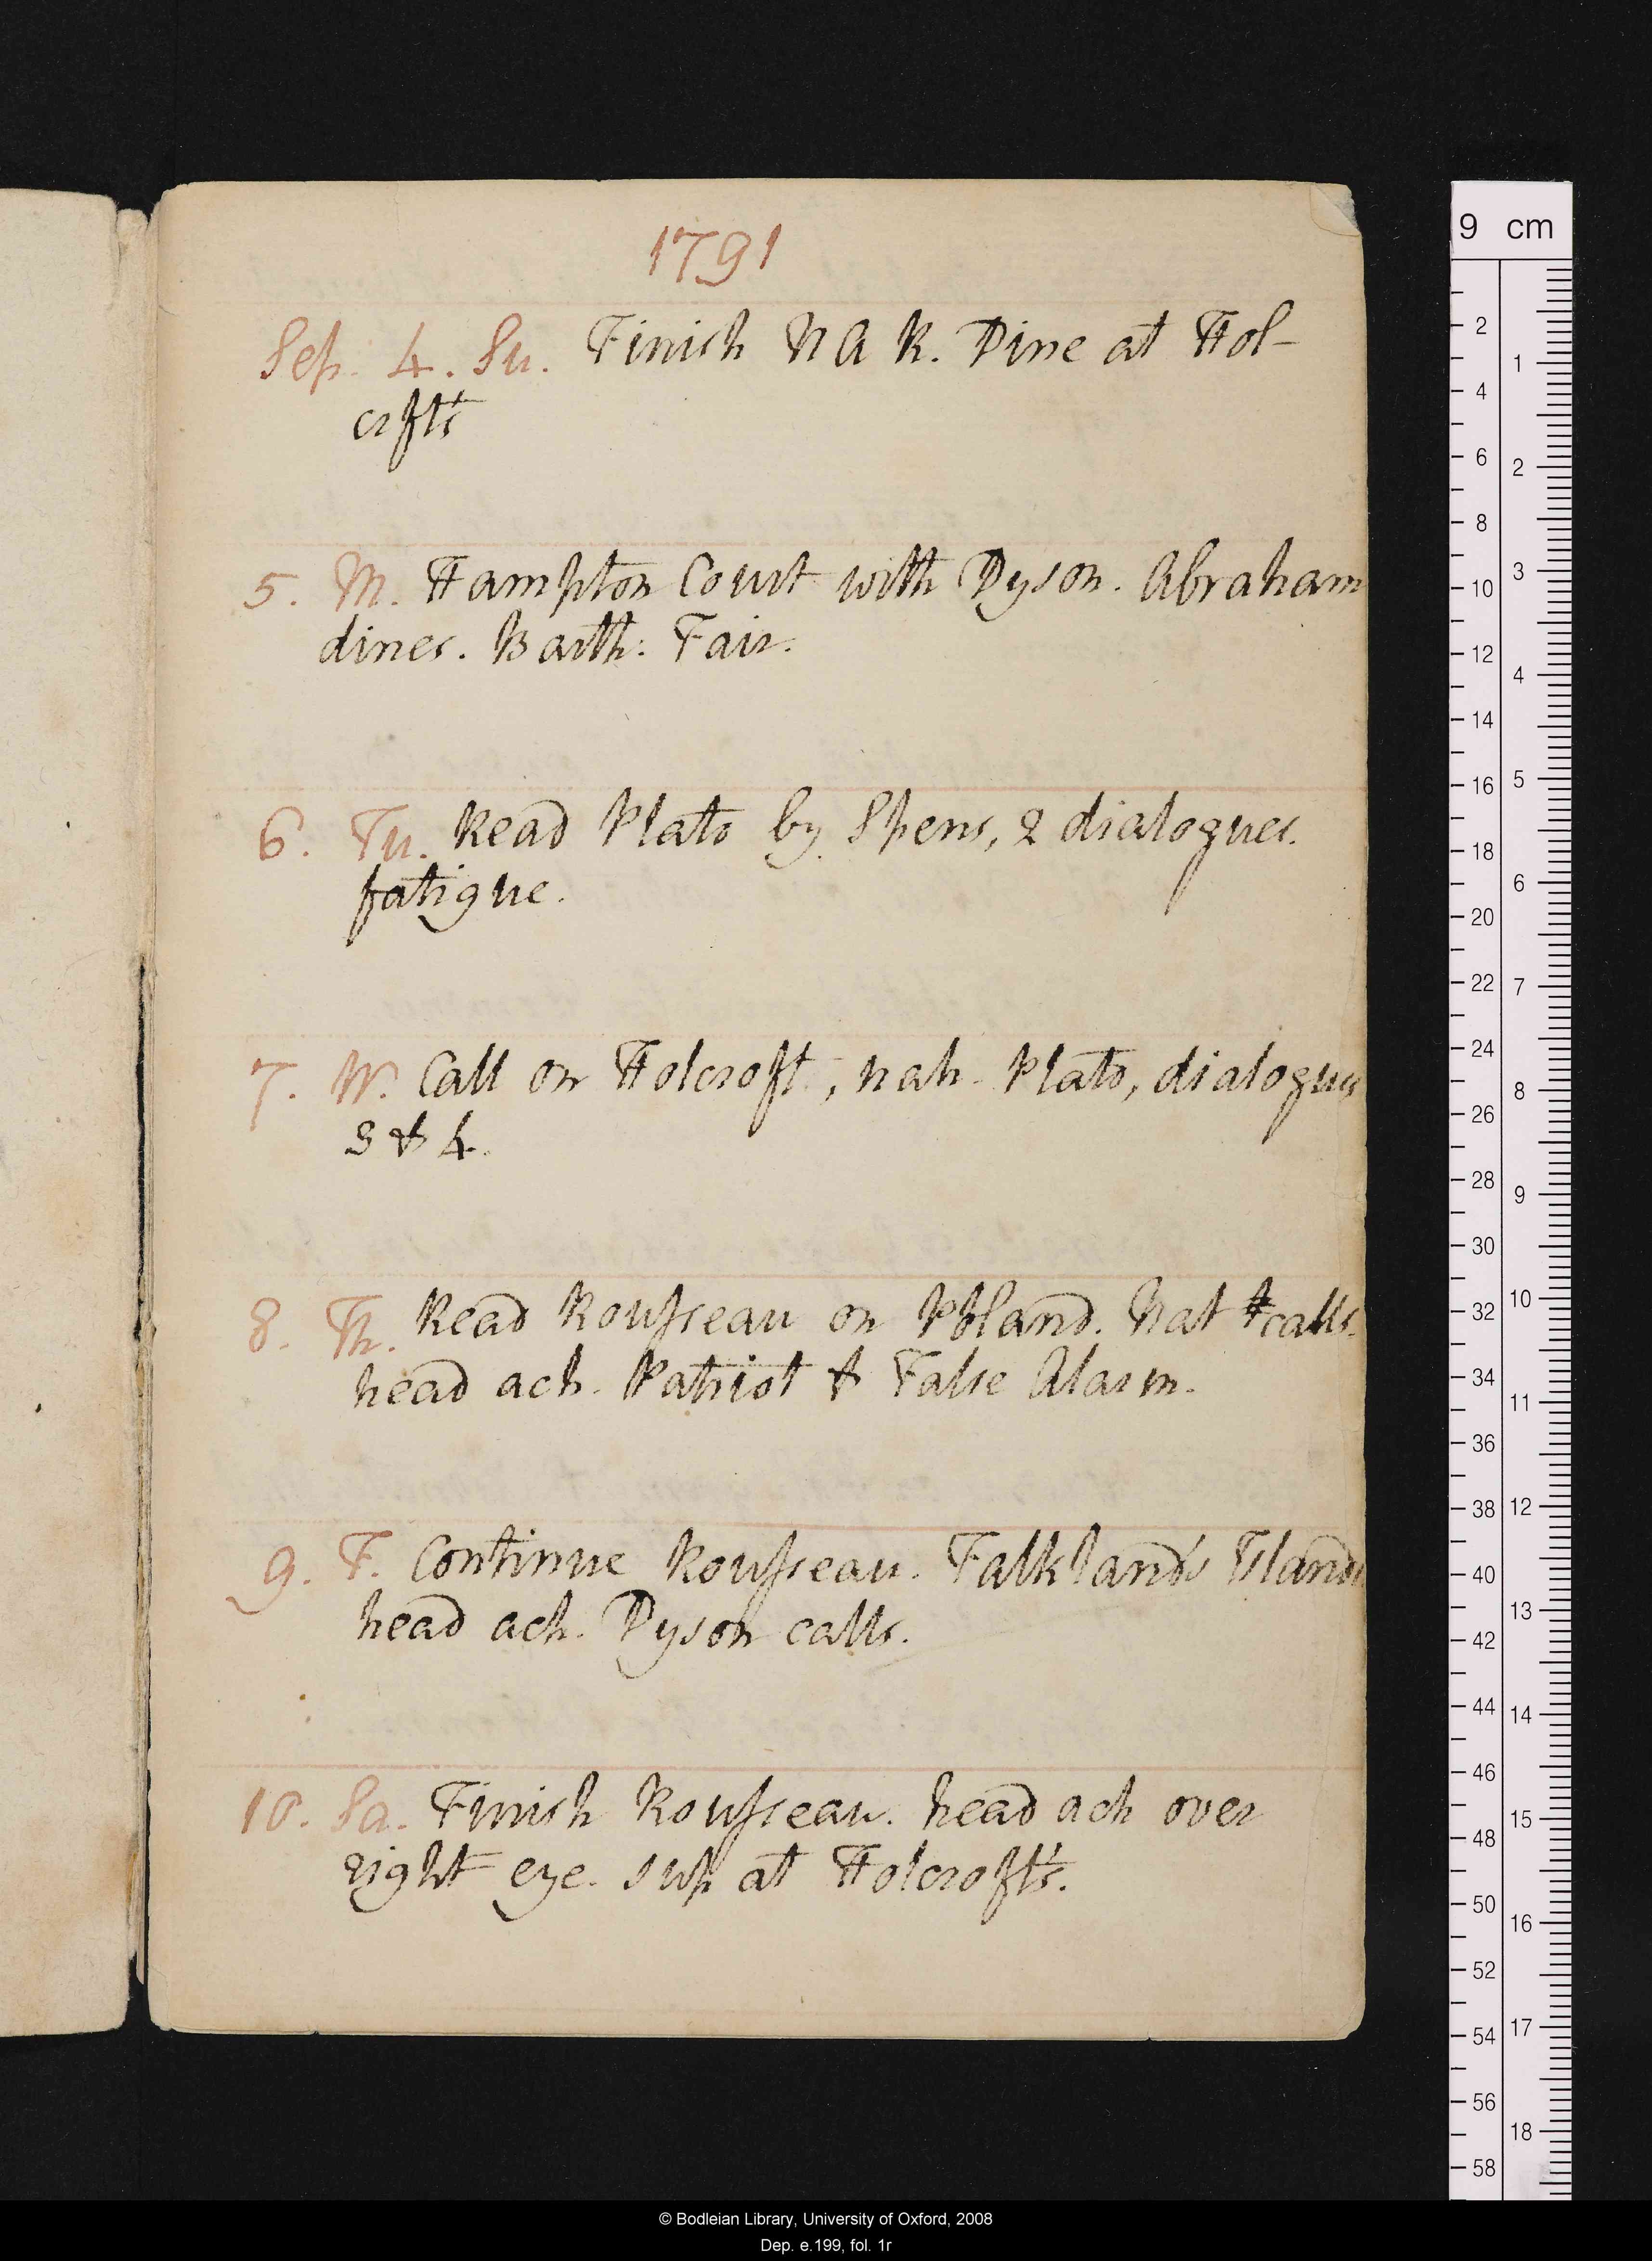 1791
Sep. 4. Su. Finish N A R. Dine at Hol-
crft's
5. M. Hampton Court with Dyson. Abraham
dines. Barth: Fair.
6. Tu. Read Plato by Spens, 2 dialogues.
fatigue.
7. W. Call on Holcroft, nah. Plato, dialogues
3 & 4.
8. Th. Read Rousseau on Poland. Nat calls.
head ach. Patriot & False Alarm.
9. F. Continue Rousseau. Falkland's Islands
head ach. Dyson calls.
10. Sa. Finish Rousseau. head ach over
right eye. sup at Holcroft's.
9 cm
2
4
6
8
10
12
14
16
18
20
22
24
26
28
30
32
34
36
38
40
42
44
46
48
50
52
54
56
58
1
2
3
4
5
6
7
8
9
10
11
12
13
14
15
16
17
18
© Bodleian Library, University of Oxford, 2008
Dep. e.199, fol. 1r